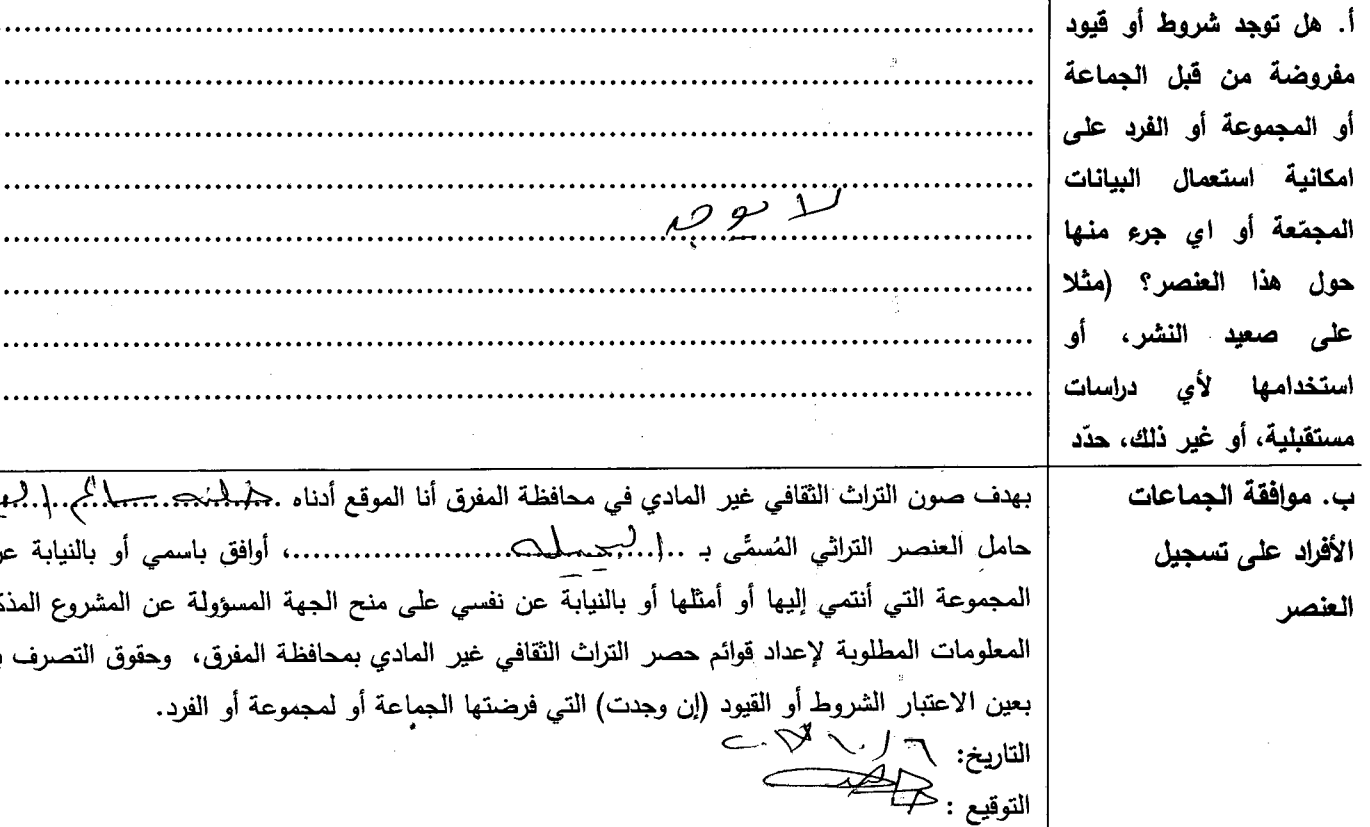 أ. هل توجد شروط أو قيود
مفروضة من قبل الجماعة
أو المجموعة أو الفرد على
امكانية استعمال البيانات
المجمّعة أو اي جرء منها
حول هذا العنصر؟ (مثلا
على صعيد النشر، أو
استخدامها لأي دراسات
مستقبلية، أو غير ذلك، حدّد
لا يوجد
ب. موافقة الجماعات
الأفراد على تسجيل
العنصر
بهدف صون التراث الثقافي غير المادي في محافظة المفرق أنا الموقع أدناه
حامل العنصر التراثي المُسمَّى بـ ..........، أوافق باسمي أو بالنيابة عن
المجموعة التي أنتمي إليها أو أمثلها أو بالنيابة عن نفسي على منح الجهة المسؤولة عن المشروع المذك
المعلومات المطلوبة لإعداد قوائم حصر التراث الثقافي غير المادي بمحافظة المفرق، وحقوق التصرف ب
بعين الاعتبار الشروط أو القيود (إن وجدت) التي فرضتها الجماعة أو لمجموعة أو الفرد.
التاريخ:
التوقيع :